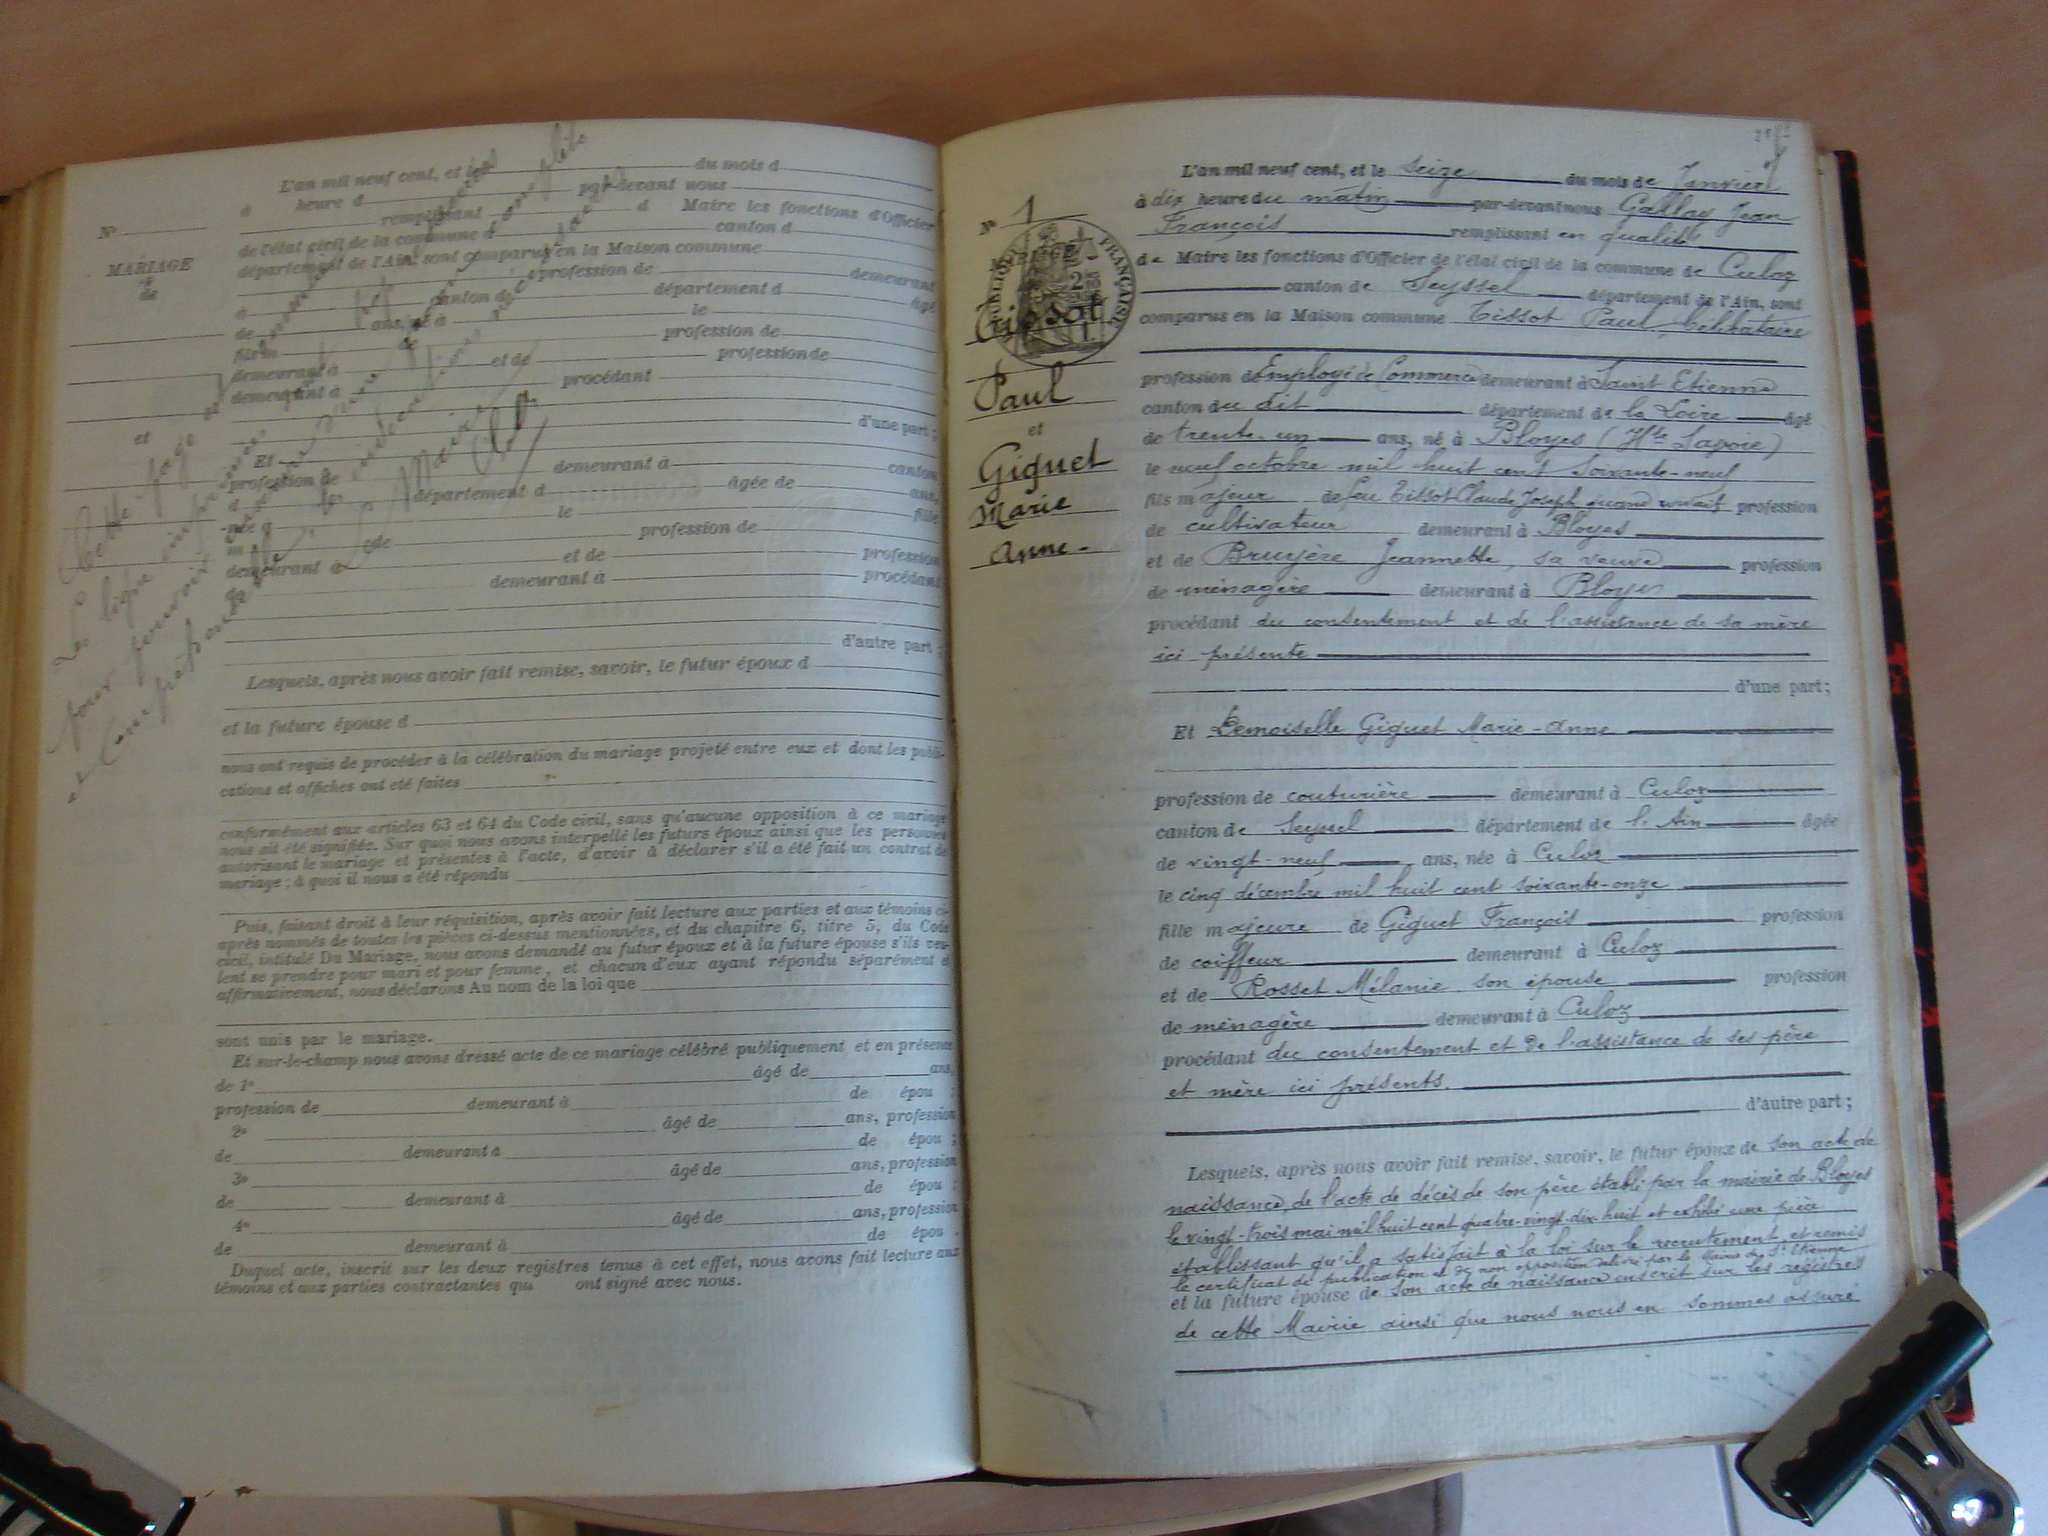 L'an mil neuf cent, et le du mois d
à heure d par-devant nous
remplissant d Maire les fonctions d'Officier
de l'état civil de la commune d canton d
département de l'Ain, sont comparus en la Maison commune
profession de demeurant
à canton d département d âgé
de ans, né à le
fils m de profession de
demeurant à et de profession de
demeurant à procédant
d'une part ;
Et
profession de demeurant à canton
d département d âgée de ans,
née à le fille
m de profession de
demeurant à et de profession
de demeurant à procédant
d'autre part ;
Lesquels, après nous avoir fait remise, savoir, le futur époux d
et la future épouse d
nous ont requis de procéder à la célébration du mariage projeté entre eux et dont les publi-
cations et affiches ont été faites
conformément aux articles 63 et 64 du Code civil, sans qu'aucune opposition à ce mariage
nous ait été signifiée. Sur quoi nous avons interpellé les futurs époux ainsi que les personnes
autorisant le mariage et présentes à l'acte, d'avoir à déclarer s'il a été fait un contrat de
mariage ; à quoi il nous a été répondu
Puis, faisant droit à leur réquisition, après avoir fait lecture aux parties et aux témoins ci-
après nommés de toutes les pièces ci-dessus mentionnées, et du chapitre 6, titre 5, du Code
civil, intitulé Du Mariage, nous avons demandé au futur époux et à la future épouse s'ils veu-
lent se prendre pour mari et pour femme, et chacun d'eux ayant répondu séparément et
affirmativement, nous déclarons Au nom de la loi que
sont unis par le mariage.
Et sur-le-champ nous avons dressé acte de ce mariage célébré publiquement et en présence
de 1º âgé de ans,
profession de demeurant à de épou ;
2º âgé de ans, profession
de demeurant à de épou ;
3º âgé de ans, profession
de demeurant à de épou ;
4º âgé de ans, profession
de demeurant à de épou .
Duquel acte, inscrit sur les deux registres tenus à cet effet, nous avons fait lecture aux
témoins et aux parties contractantes qui ont signé avec nous.
Nº
MARIAGE
de
et
Cette page
Le Maire
L'an mil neuf cent, et le Seize du mois de Janvier
à dix heure du matin par-devant nous Gallay Jean
François remplissant en qualité
de Maire les fonctions d'Officier de l'état civil de la commune de Culoz
canton de Seyssel département de l'Ain, sont
comparus en la Maison commune Tissot Paul, Célibataire
profession d'Employé de Commerce demeurant à Saint Etienne
canton du dit département de la Loire âgé
de trente-un ans, né à Bloyes (Hte Savoie)
le neuf octobre mil huit cent soixante-neuf
fils majeur de feu Tissot Claude Joseph quand vivait profession
de cultivateur demeurant à Bloyes
et de Bruyère Jeannette, sa veuve profession
de ménagère demeurant à Bloyes
procédant du consentement et de l'assistance de sa mère
ici présente
d'une part ;
Et Demoiselle Giguet Marie-Anne
profession de couturière demeurant à Culoz
canton de Seyssel département de l'Ain âgée
de vingt-neuf ans, née à Culoz
le cinq décembre mil huit cent soixante-onze
fille majeure de Giguet François profession
de coiffeur demeurant à Culoz
et de Rosset Mélanie son épouse profession
de ménagère demeurant à Culoz
procédant du consentement et de l'assistance de ses père
et mère ici présents.
d'autre part ;
Lesquels, après nous avoir fait remise, savoir, le futur époux de son acte de
naissance, de l'acte de décès de son père établi par la mairie de Bloyes
le vingt-trois mai mil huit cent quatre-vingt-dix-huit et exhibé une pièce
établissant qu'il a satisfait à la loi sur le recrutement, et remis
le certificat de publication et de non opposition délivré par le Maire de St Etienne
et la future épouse de son acte de naissance inscrit sur les registres
de cette Mairie ainsi que nous nous en sommes assuré
Nº 1
RÉPUBLIQUE FRANÇAISE
Tissot
Paul
et
Giguet
Marie
Anne-